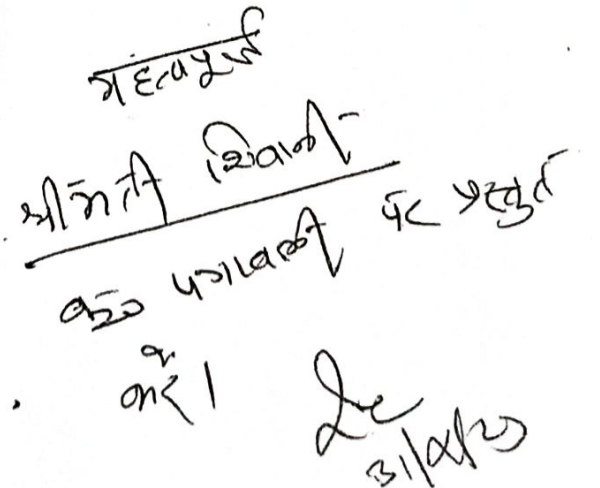 महत्वपूर्ण
श्रीमती शिवानी
पत्रावली पर प्रस्तुत
करें।